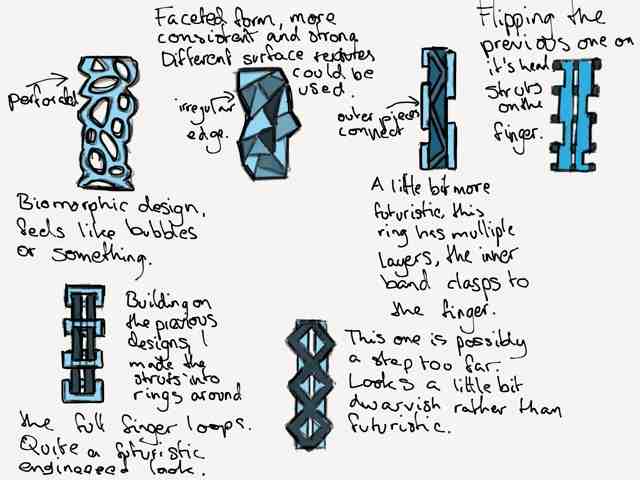 perforated
Biomorphic design,
feels like bubbles
or something.
Faceted form, more
consistent and strong
Different surface textures
could be
used.
irregular
edge.
outer pieces
connect
A little bit more
futuristic, this
ring has multiple
layers, the inner
band clasps to
the finger.
Flipping the
previous one on
it's head
struts
on the
finger.
Building on
the previous
designs, I
made the
struts into
rings around
the full finger loops.
Quite a futuristic
engineered look.
This one is possibly
a step too far.
Looks a little bit
dwarvish rather than
futuristic.